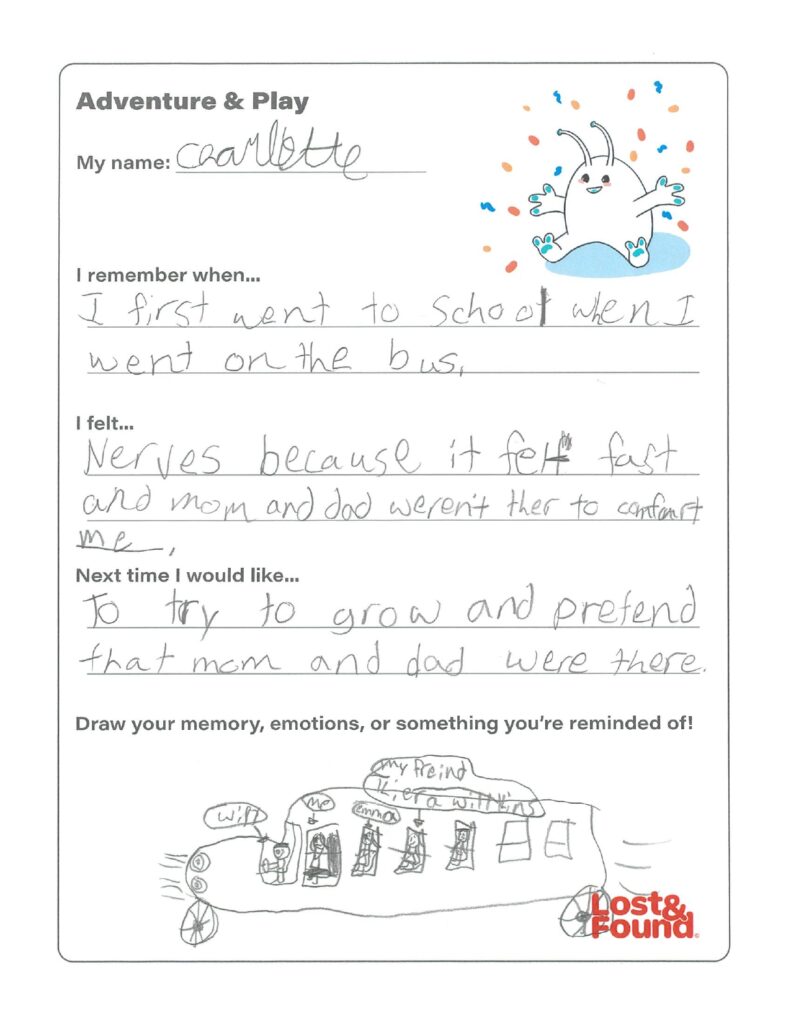 Adventure & Play
My name: Charlotte
I remember when...
I first went to school when I
went on the bus.
I felt...
Nerves because it felt fast
and mom and dad weren't ther to comfourt
me.
Next time I would like...
To try to grow and pretend
that mom and dad were there.
Draw your memory, emotions, or something you're reminded of!
my freind
Kiera
me
emma
Lost&
Found